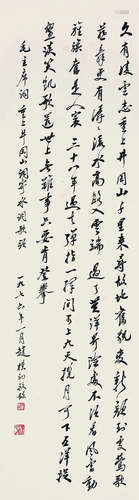 久有凌云志重上井冈山千里来寻故地旧貌变新颜到处莺歌
燕舞更有潺潺流水高路入云端过了黄洋界险处不须看风雷动
旌旗奋是人寰三十八年过去弹指一挥间可上九天揽月可下五洋捉
鳖谈笑凯歌还世上无难事只要肯登攀
毛主席词重上井冈山调寄水调歌头
一九七六年一月赵朴初敬录